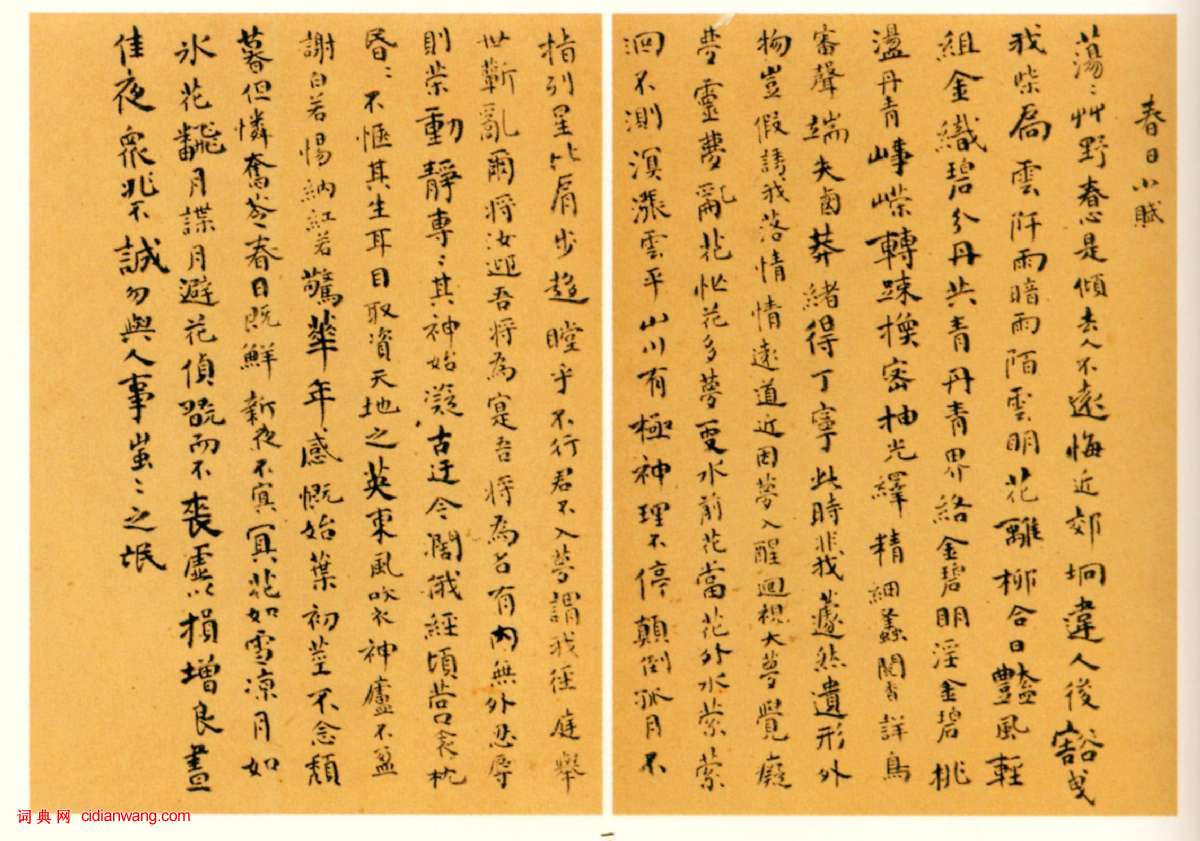 春日小賦
蕩〻艸野春心是傾去人不遠悔近郊坰違人後谿戍
我柴扃雲阡雨暗雨陌雲明花離柳合日豔風輕
組金織碧分丹共青丹青界絡金碧明淫金碧桃
盪丹青崢嶸轉疎換密抽光繹精細蟲聞香詳鳥
審聲端夫鹵莽緒得丁寧此時非我蘧然遺形外
物豈假誘我落情情遠道近因夢入醒迴視大夢覺癡
夢靈夢亂花忙花多夢更水前花當花外水縈縈
洄不測溟漲雲平山川有極神理不停顛倒孤月不
指列星比肩步趨瞠乎不行君不入夢謂我徑庭舉
世蘄亂爾將汝迎吾將為寔吾將為名有內無外忍辱
則榮動靜專〻其神始凝古迂今闊俄經頃營衾枕
昏〻不愜其生耳目取資天地之英東風吹衣神廬不盈
謝白若惕納紅若驚華年感慨始葉初莖不念頹
暮但憐奮苓春日既鮮新夜不寘冥花如雪凜月如
冰花翻月諜月避花偵翫而不喪虛以損增良晝
佳夜衆兆不誠勿與人事蚩〻之氓
词典网 cidianwang.com
一